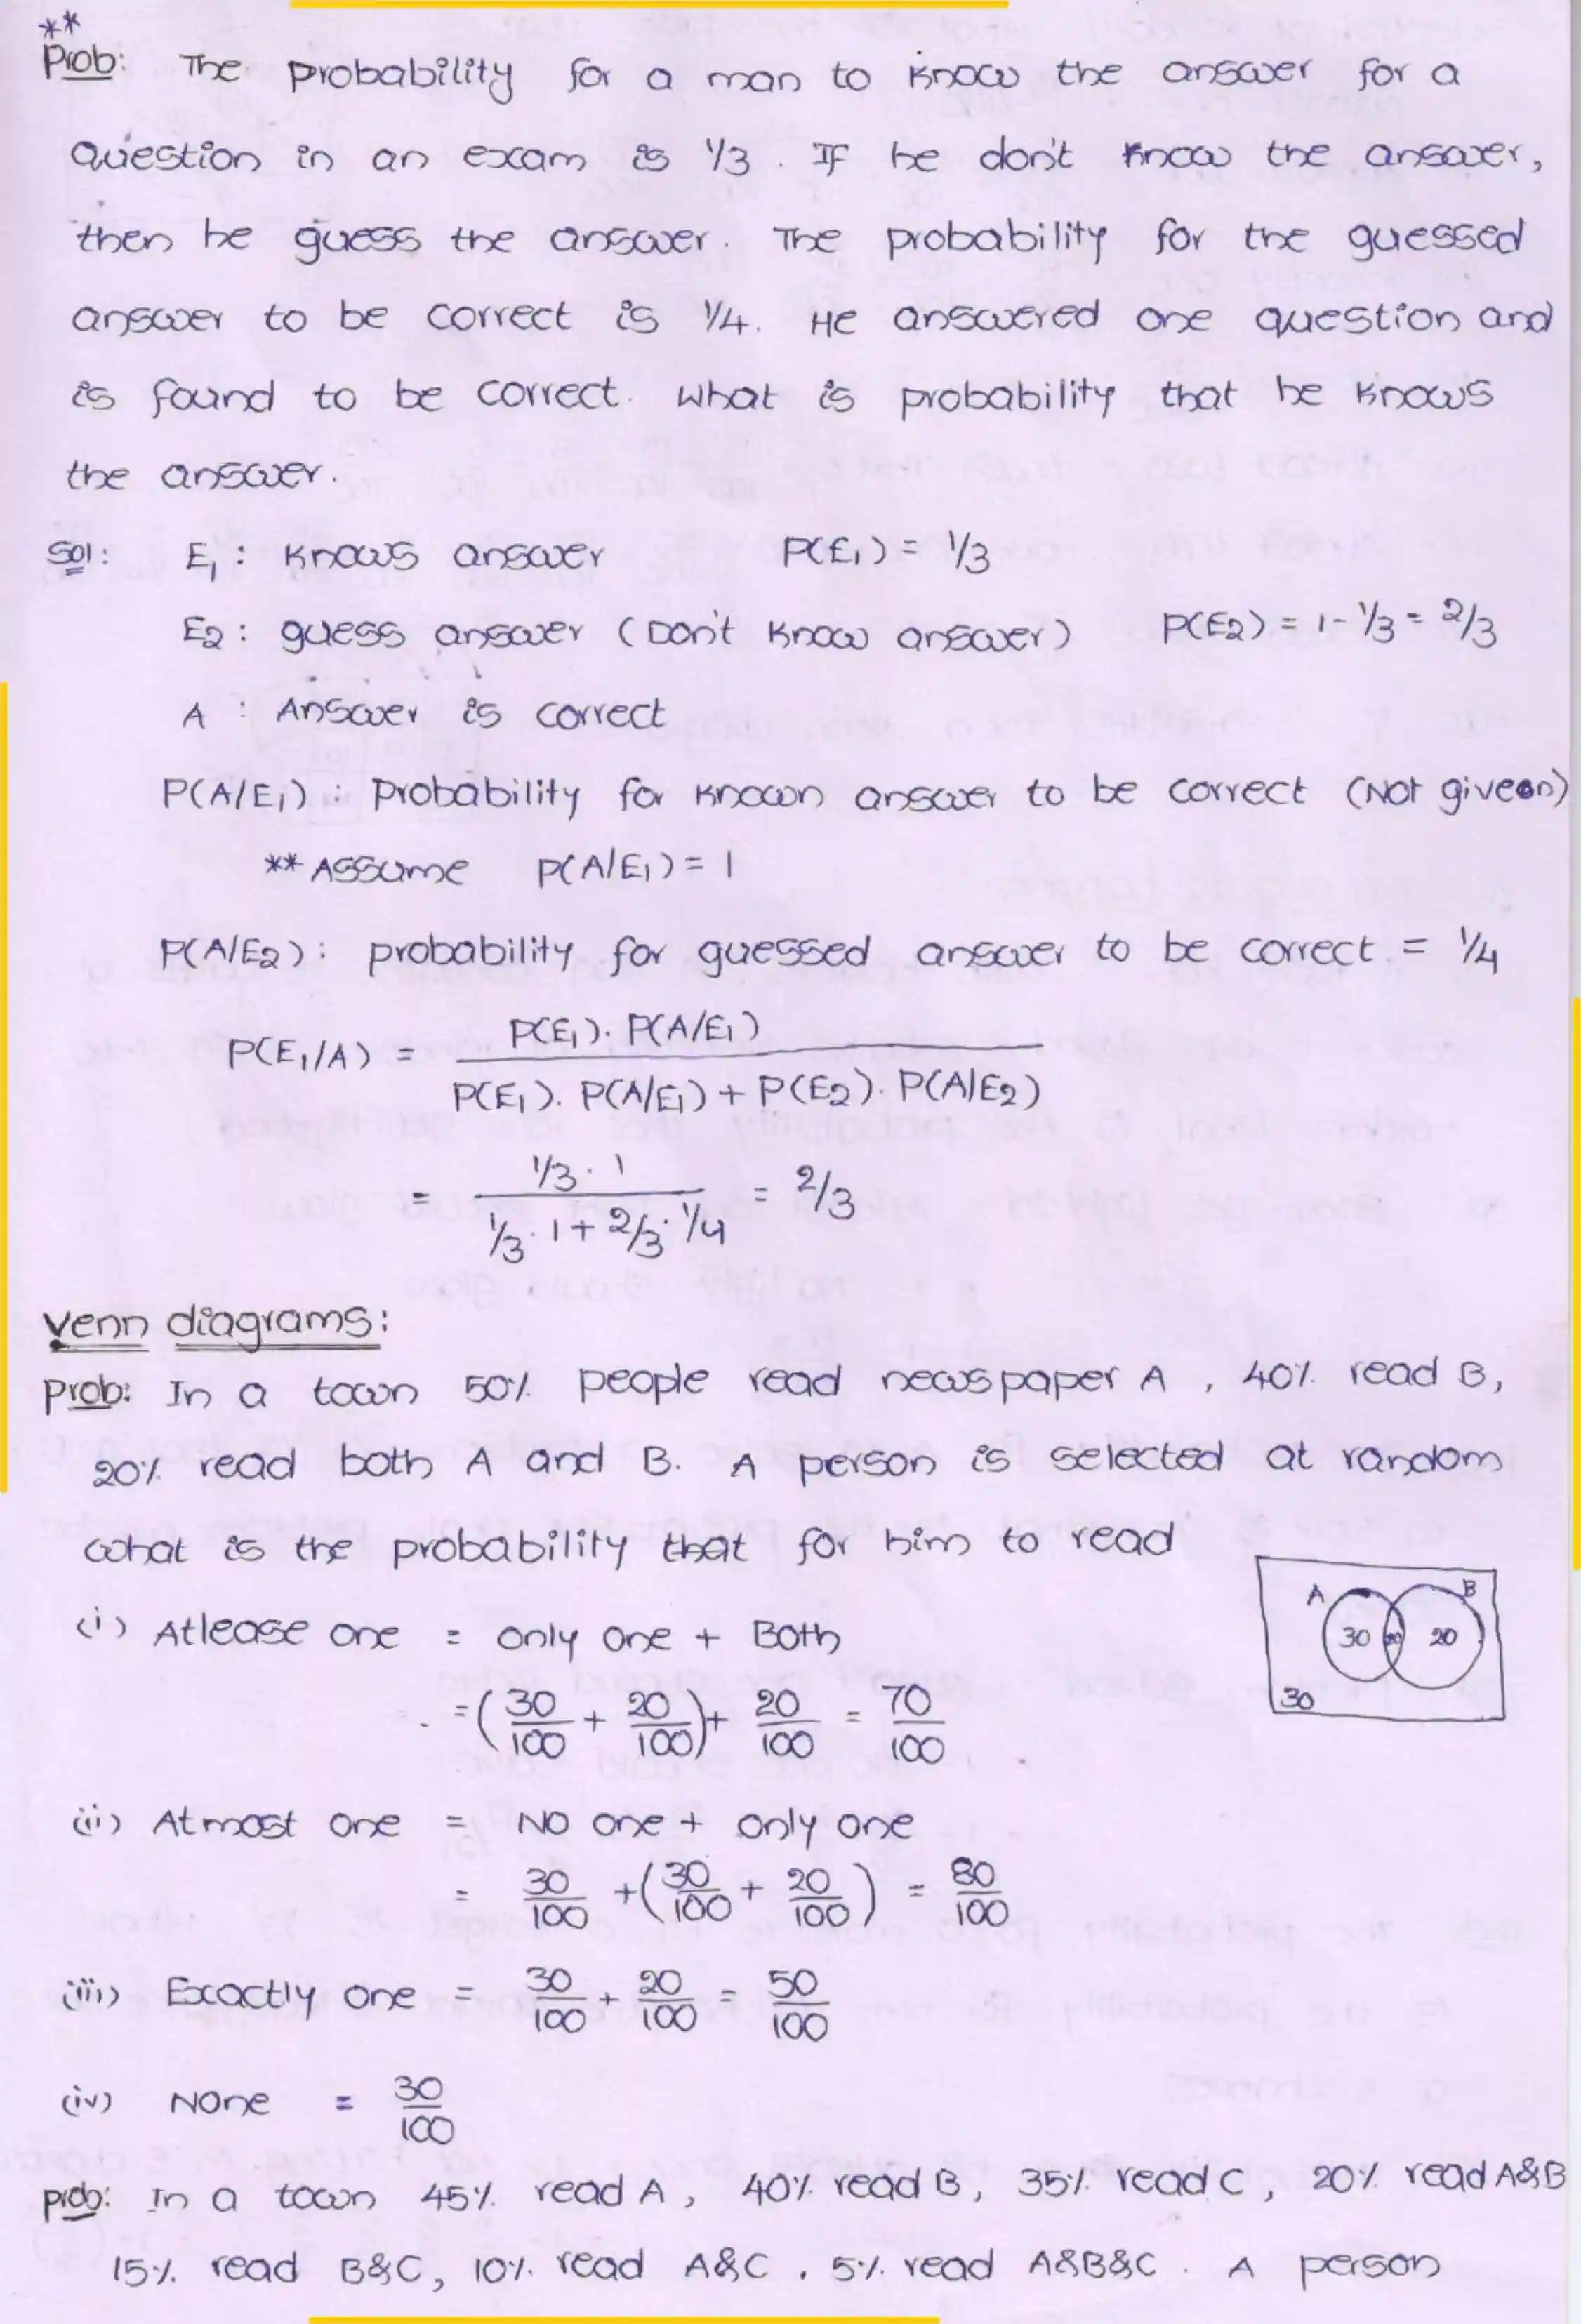 **
Prob: The probability for a man to know the answer for a
question in an exam is 1/3 . If he don't know the answer,
then he guess the answer. The probability for the guessed
answer to be correct is 1/4. He answered one question and
is found to be correct. What is probability that he knows
the answer.
Sol: E1 : Knows answer P(E1) = 1/3
E2 : guess answer (Don't know answer) P(E2) = 1 - 1/3 = 2/3
A : Answer is correct
P(A/E1) : Probability for known answer to be correct (Not given)
** Assume P(A/E1) = 1
P(A/E2) : probability for guessed answer to be correct. = 1/4
P(E1/A) = P(E1). P(A/E1) / P(E1). P(A/E1) + P(E2). P(A/E2)
= 1/3 . 1 / 1/3 . 1 + 2/3 . 1/4 = 2/3
Venn diagrams:
Prob: In a town 50% people read newspaper A , 40% read B,
20% read both A and B. A person is selected at random
what is the probability that for him to read
A B
30 20 20
30
(i) Atlease one = only one + Both
= (30/100 + 20/100) + 20/100 = 70/100
(ii) Atmost one = No one + only one
= 30/100 + (30/100 + 20/100) = 80/100
(iii) Exactly one = 30/100 + 20/100 = 50/100
(iv) None = 30/100
prob: In a town 45% read A , 40% read B, 35% read C , 20% read A&B
15% read B&C, 10% read A&C , 5% read A&B&C . A person